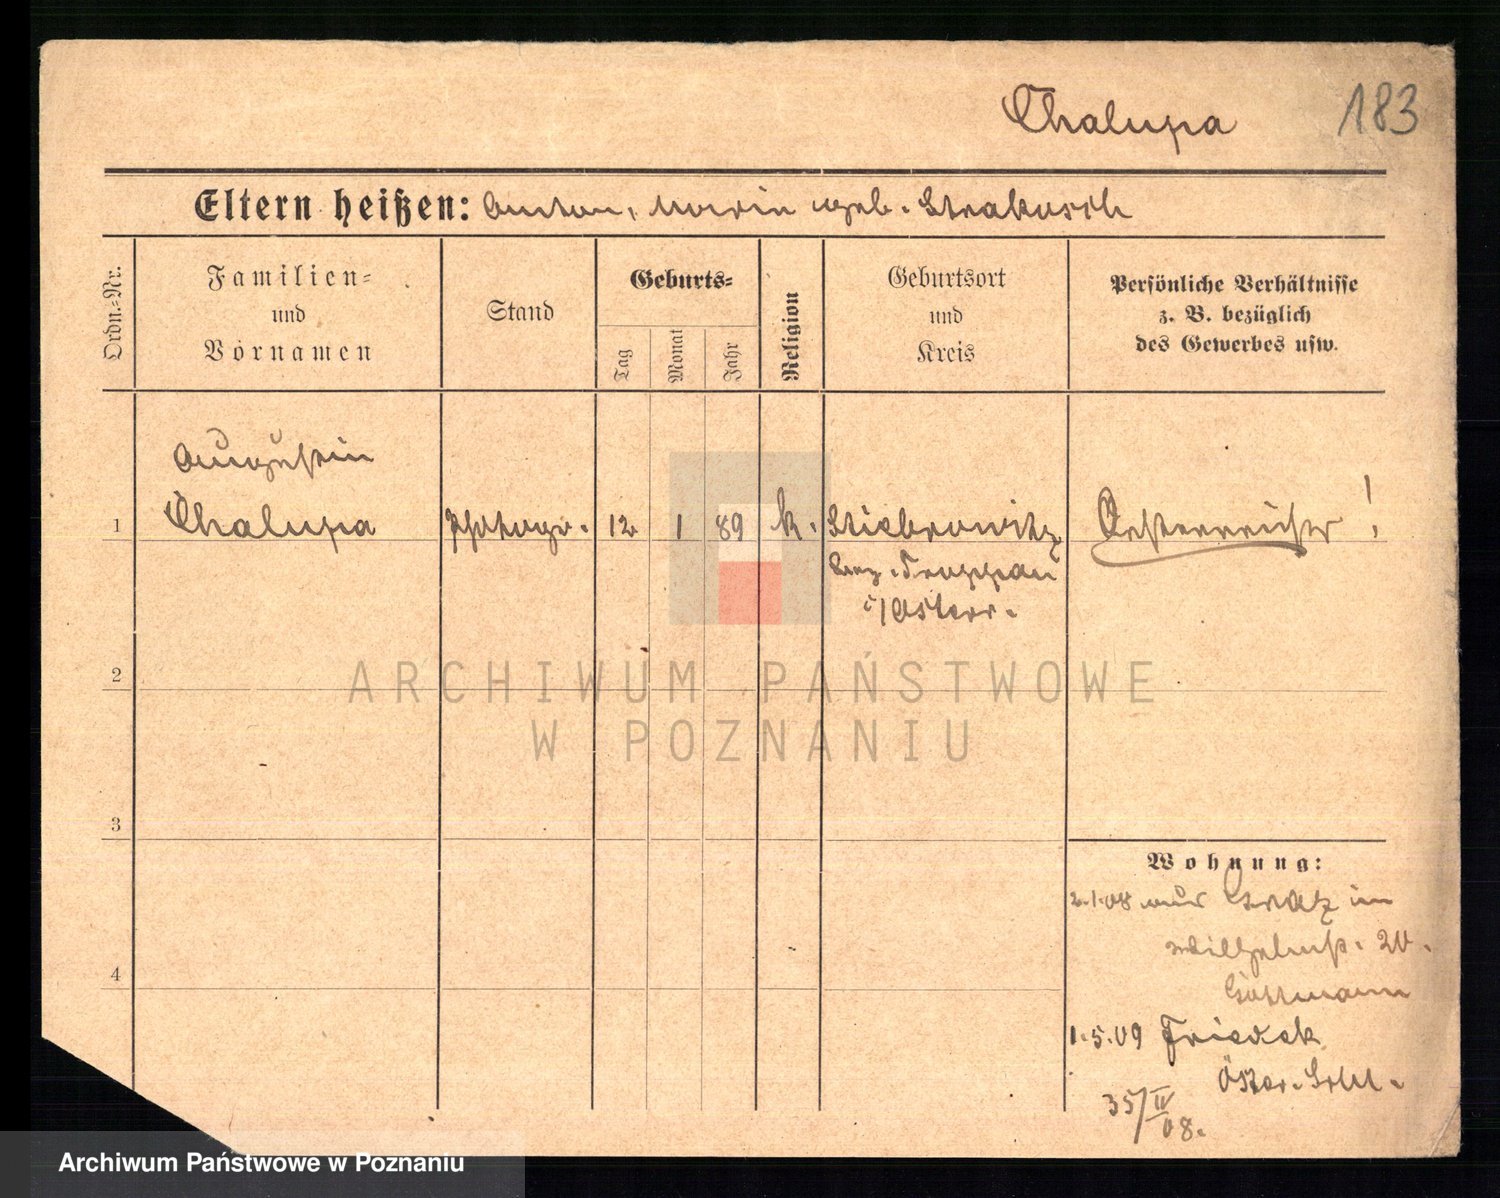 Chalupa 183
Eltern heißen: Anton, Marie geb. Strakosch
Ordn.-Nr.
Familien-
und
Vornamen
Stand
Geburts-
Tag
Monat
Jahr
Religion
Geburtsort
und
Kreis
Persönliche Verhältnisse
z. B. bezüglich
des Gewerbes usw.
Augustin
1 Chalupa Photogr. 12 1 89 k. Stiebrowitz Oesterreicher!
Bez. Troppau
i/Österr.
2
ARCHIWUM PAŃSTWOWE
W POZNANIU
3
Wohnung:
2.1.08 aus Graz in
Wilhelmst. 20.
4
1.5.09 Friedek
Öster. Schl.
35/IV
08.
Archiwum Państwowe w Poznaniu